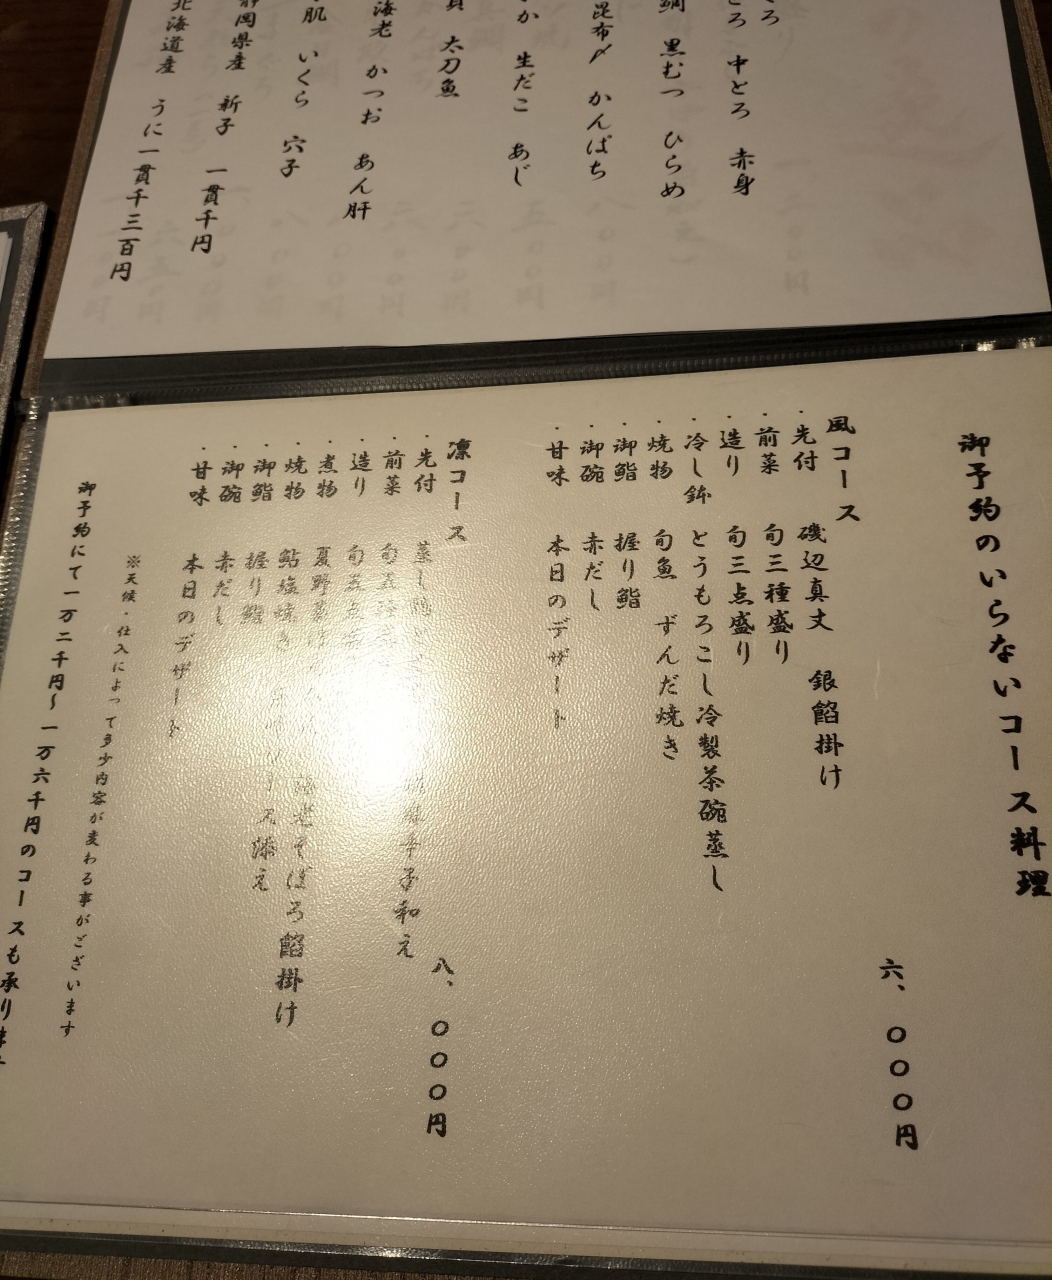 とろ 中とろ 赤身
鯛 黒むつ ひらめ
昆布〆 かんぱち
か 生だこ あじ
太刀魚
海老 かつお あん肝
肌 いくら 穴子
静岡県産 新子 一貫千円
北海道産 うに一貫千三百円
御予約のいらないコース料理
風コース 六、〇〇〇円
・先付 磯辺真丈 銀餡掛け
・前菜 旬三種盛り
・造り 旬三点盛り
・冷し鉢 とうもろこし冷製茶碗蒸し
・焼物 旬魚 ずんだ焼き
・御鮨 握り鮨
・御碗 赤だし
・甘味 本日のデザート
凛コース 八、〇〇〇円
・先付 蒸し
・前菜 旬五
・造り 旬五点
・煮物 夏野菜 海老そぼろ餡掛け
・焼物 鮎塩焼き 添え
・御鮨 握り鮨
・御碗 赤だし
・甘味 本日のデザート
※天候・仕入によって多少内容が変わる事がございます
御予約にて一万二千円〜一万六千円のコースも承りま